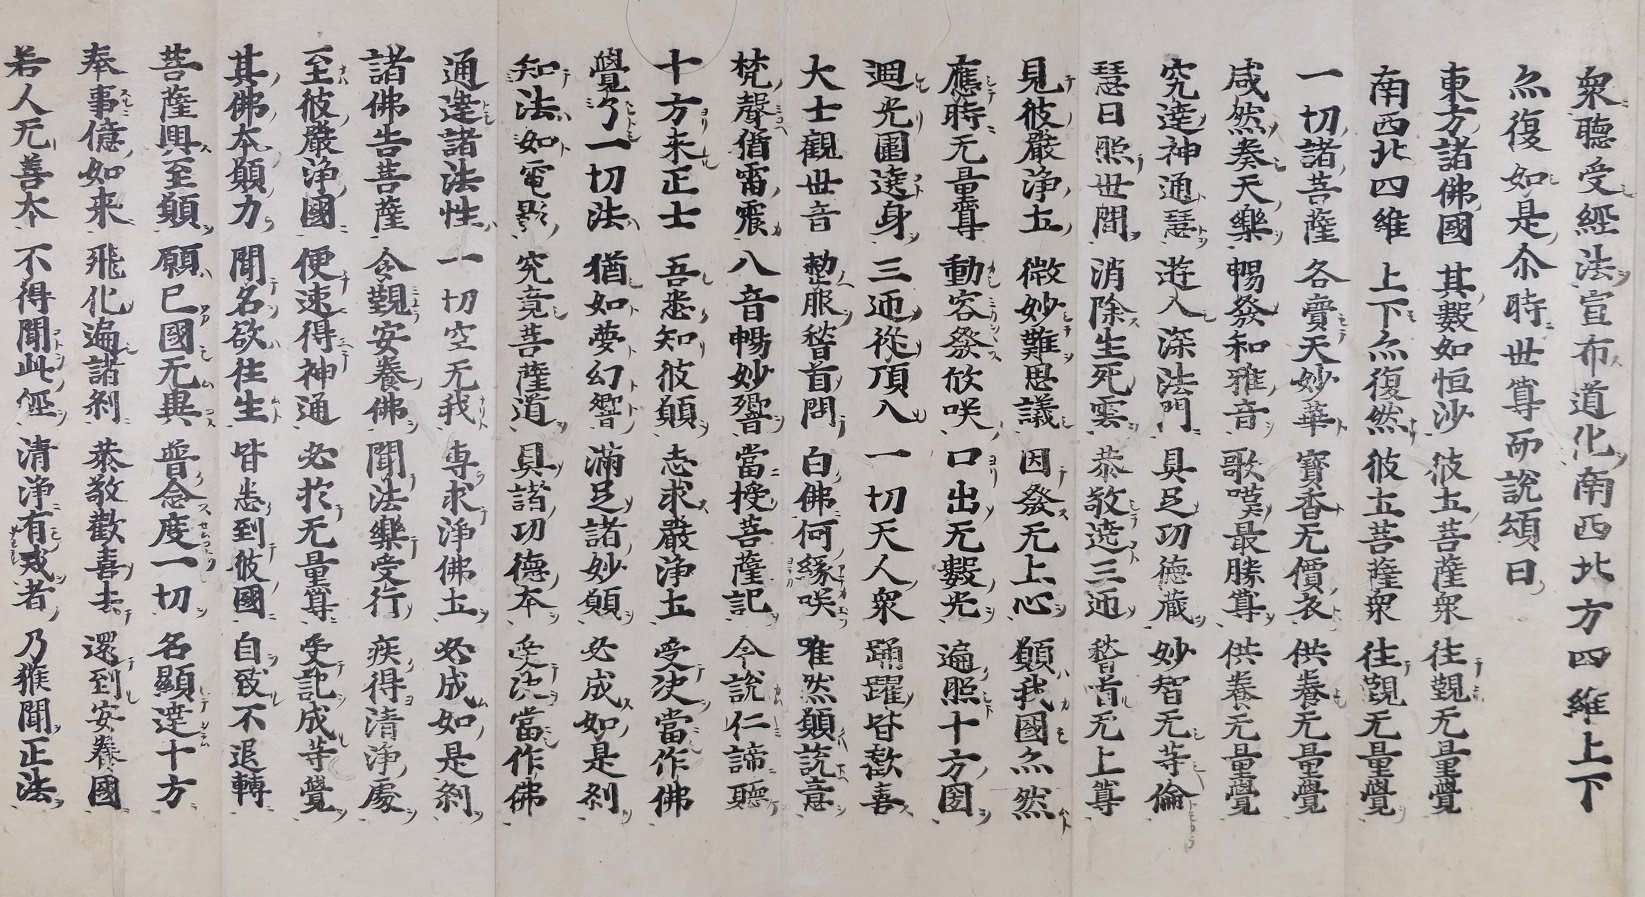 衆聽受經法宣布道化南西北方四維上下
亦復如是尒時世尊而說頌曰
東方諸佛國 其數如恒沙 彼圡菩薩衆 往覲无量覺
南西北四維 上下亦復然 彼圡菩薩衆 往覲无量覺
一切諸菩薩 各賷天妙華 寳香无價衣 供養无量覺
咸然奏天樂 暢發和雅音 歌嘆最勝尊 供養无量覺
究達神通慧 遊入深法門 具足功德藏 妙智无等倫
慧日照世間 消除生死雲 恭敬遶三迊 稽首无上尊
見彼嚴淨圡 微妙難思議 因發无上心 願我國亦然
應時无量尊 動容發忻咲 口出无數光 遍照十方國
迴光圍遶身 三迊從頂入 一切天人衆 踊躍皆歡喜
大士觀世音 整服稽首問 白佛何緣咲 唯然願說意
梵聲猶雷震 八音暢妙響 當授菩薩記 今說仁諦聽
十方来正士 吾悉知彼願 志求嚴淨圡 受决當作佛
覺了一切法 猶如夢幻響 滿足諸妙願 必成如是刹
知法如電影 究竟菩薩道 具諸功德本 受决當作佛
通達諸法性 一切空无我 専求淨佛圡 必成如是刹
諸佛告菩薩 令覲安養佛 聞法樂受行 疾得清淨處
至彼嚴淨國 便速得神通 必於无量尊 受記成等覺
其佛本願力 聞名欲往生 皆悉到彼國 自致不退轉
菩薩興至願 願己國无異 普念度一切 名顯達十方
奉事億如来 飛化遍諸刹 恭敬歡喜去 還到安養國
若人无善本 不得聞此經 清淨有戒者 乃獲聞正法